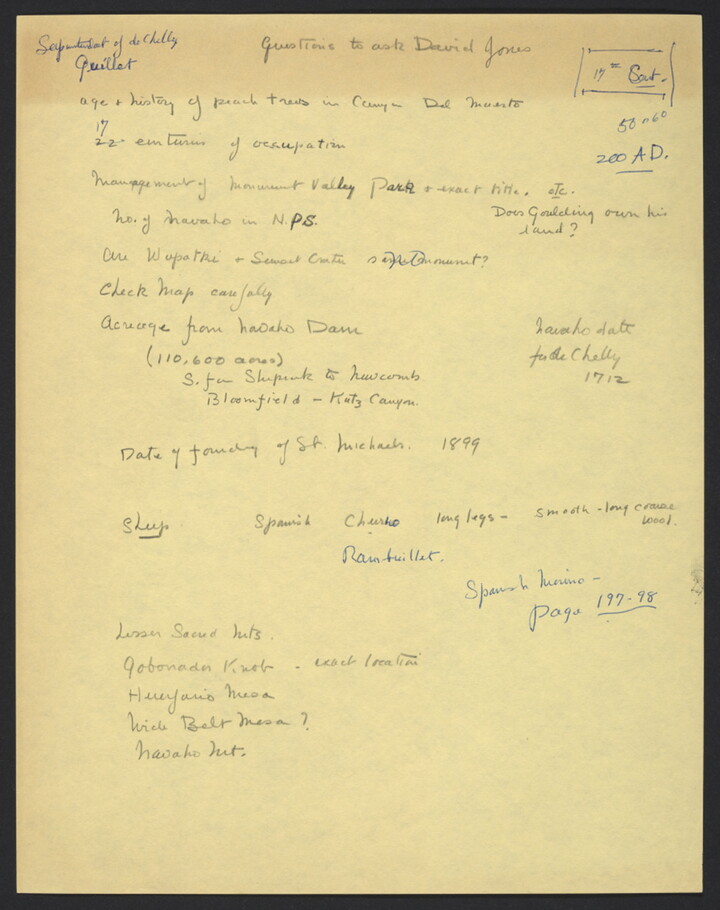 Superintendent of de Chelly
Guillet
Questions to ask David Jones
17th Sat.
50 or 60
200 A.D.
age & history of peach trees in Canyon Del Muerto
17
22 centuries of occupation
Management of Monument Valley Park & exact title, etc.
No. of Navaho in N.P.S.
Does Goulding own his
land?
Are Wupatki & Sunset Crater monument?
Check Map carefully
Acreage from Navaho Dam
(110,600 acres)
S. fm Shiprock to Newcomb
Bloomfield - Kutz Canyon.
Navaho date
for de Chelly
1712
Date of founding of St. Michaels. 1899
Sheep Spanish Churro long legs - smooth - long coarse
wool.
Rambuillet.
Spanish Merino -
page 197-98
Lesser Sacred Mts.
Gobonador Knob - exact location
Huerfano Mesa
Wide Belt Mesa?
Navaho Mt.